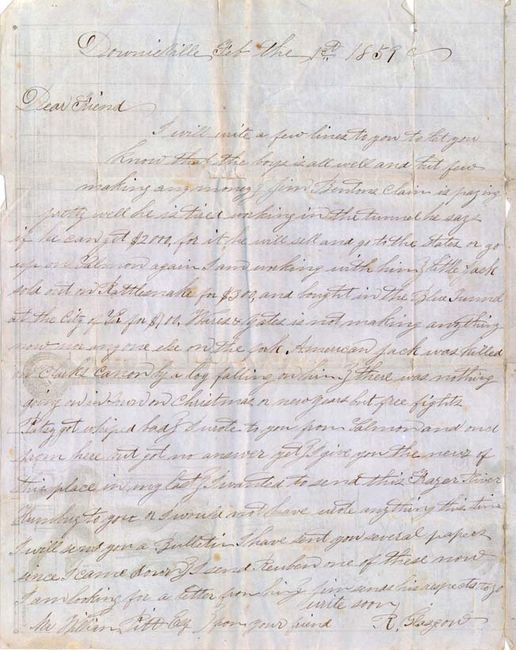 Downieville Feb the 1st 1859
Dear Friend
I will write a few lines to you to let you
know that the boys is all well and but few
making any money Jim Bentons Claim is paying
pretty well he is tired working in the tunnel he says
if he can get $2000, for it he will sell and go to the States or go
up on Salmon again I am working with him Little Jack
sold out on Rattlesnake for $300, and bought in the Blue Tunnel
at the City of for $700, & Gates is not making anything
now nor anyone else on the fork American Jack was killed
in Clarks Canon by a log falling on him there was nothing
going on in on Christmas or new years but free fights
got whiped bad I wrote to you from Salmon and one
from here but got no answer yet I give you the news of
this place in my last I wanted to send this Frazer River
Humbug to you or I would not have wrote anything this time
I will send you a Bulletin I have sent you several papers
since I came down I send Reuben one of these now
I am looking for a letter from him Jim sends his respects to you
write soon
Mr William Pitt from your friend R. Glasgow